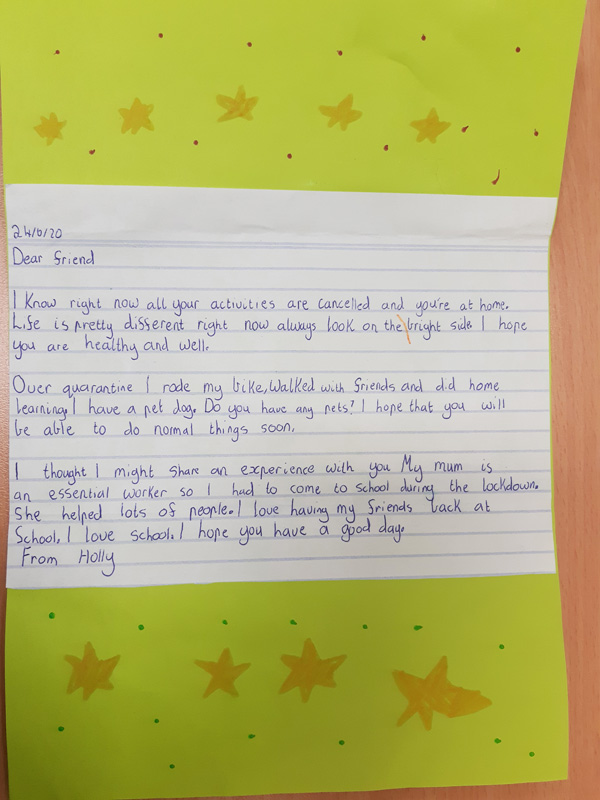 24/6/20
Dear friend
I Know right now all your activities are cancelled and you're at home.
Life is pretty different right now always look on the bright side I hope
you are healthy and well.
Over quarantine I rode my bike, walked with friends and did home
learning. I have a pet dog. Do you have any pets? I hope that you will
be able to do normal things soon.
I thought I might share an experience with you My mum is
an essential worker so I had to come to school during the lockdown.
She helped lots of people. I love having my friends back at
School. I love school. I hope you have a good day.
From Holly